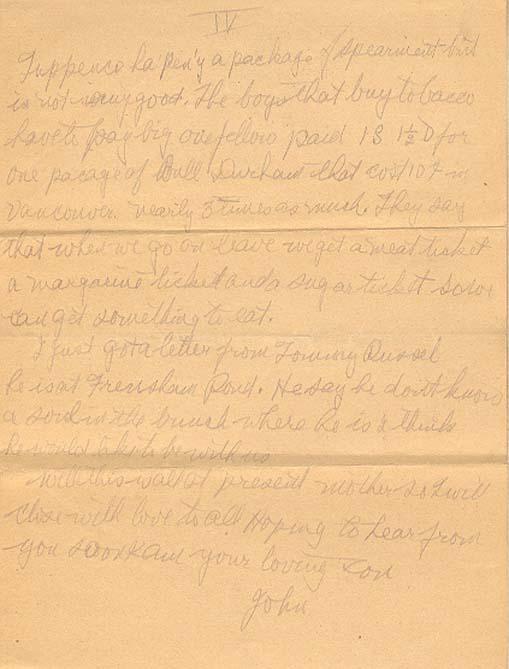 IV
Tuppence ha'pen'y a package of spearmint but
is not very good. The boys that buy tobacco
have to pay big one fellow paid 1S 1½D for
one pacage of Bull Durham that cost 10¢ in
Vancouver. nearly 3 times as much. They say
that when we go on leave we get a meat ticket
a margarine ticket and a sugar ticket so we
can get something to eat.
I just got a letter from Tommy Russel
he is at Frensham Pond. He say he don't know
a soul in the bunch where he is & thinks
he would like to be with us
Well this is all at present mother so I will
close with love to all Hoping to hear from
you soon I am your loving son
John